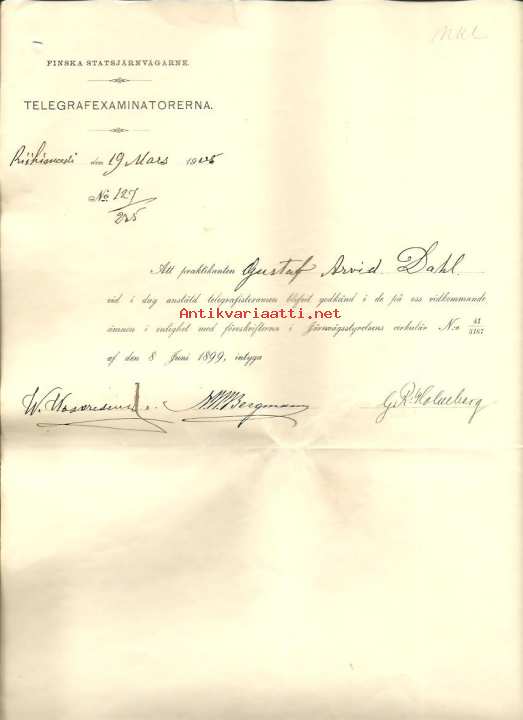 FINSKA STATSJÄRNVÄGARNE.
TELEGRAFEXAMINATORERNA.
den 19 Mars 1905
No 127
225
Att praktikanten Gustaf Arvid Dahl
vid i dag anstäld telegrafistexamen blifvit godkänd i de på oss vidkommande
Antikvariaatti.net
ämnen i enlighet med föreskrifterna i Järnvägsstyrelsens cirkulär N:o 41/5167
af den 8 Juni 1899, intyga
W. Bergmann G. R. Holmberg